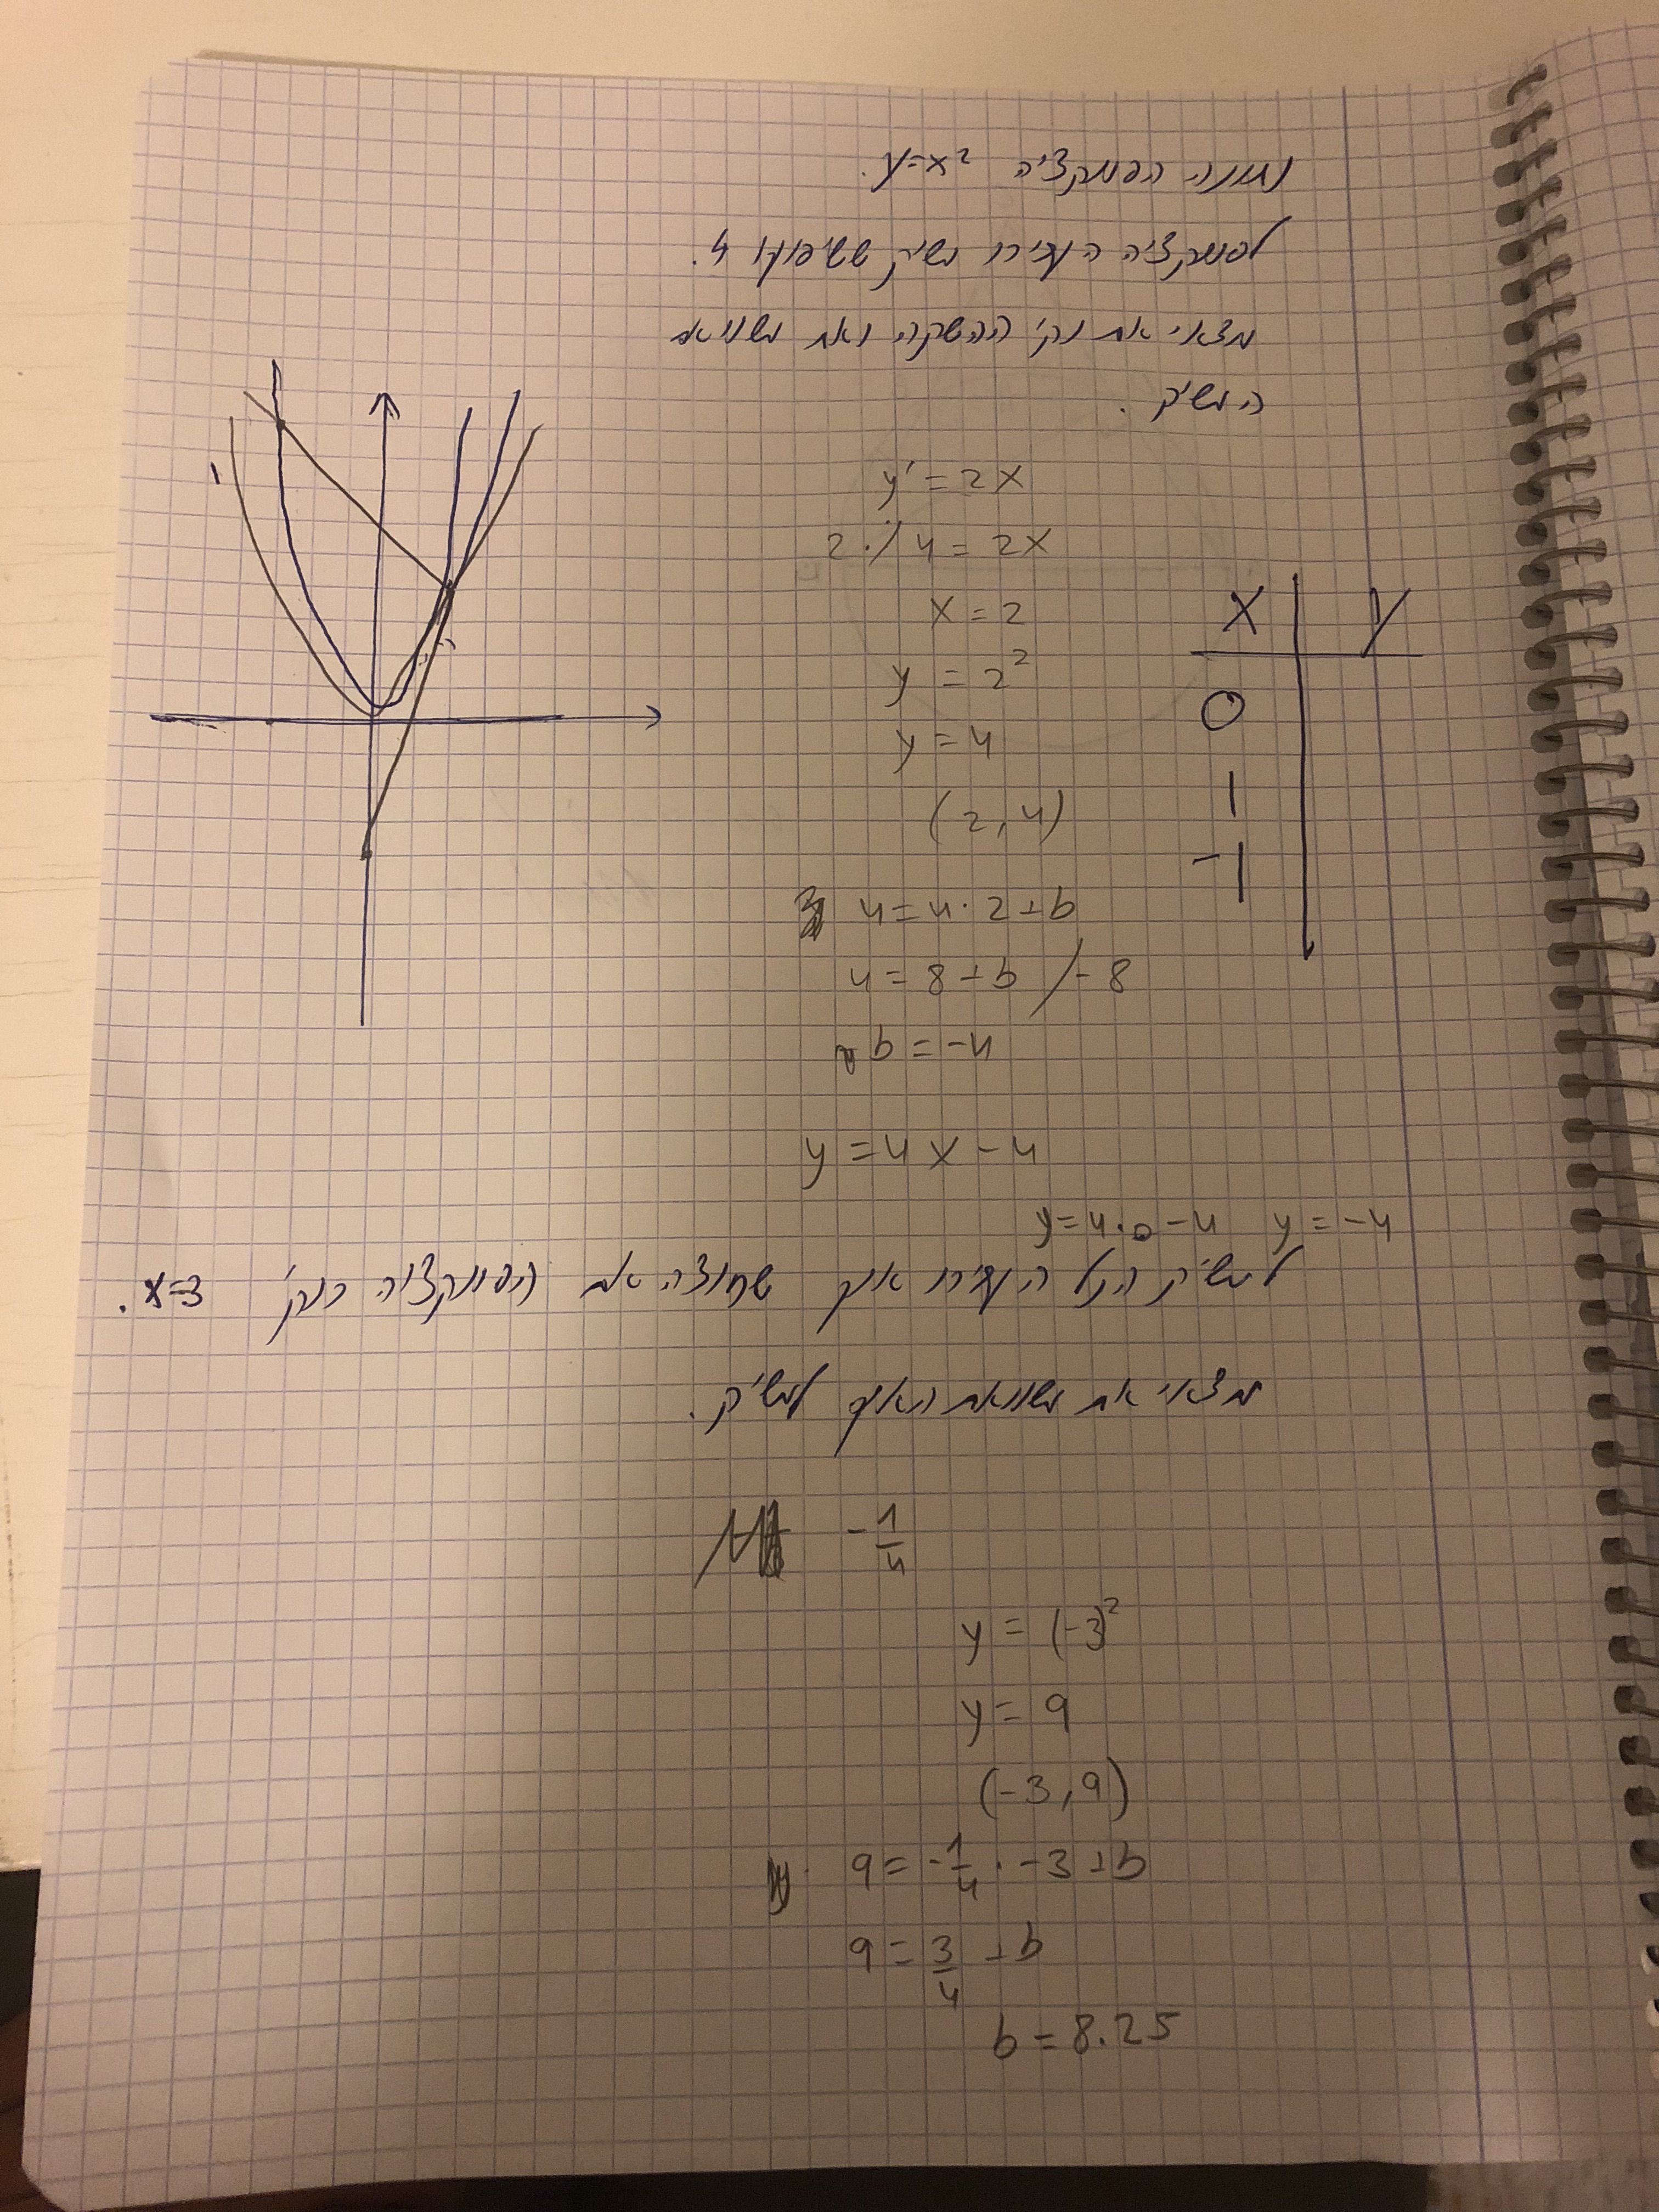 נתונה הפונקציה y=x².
לפונקציה העבירו משיק ששיפועו 4.
מצאי את נק' ההשקה ואת משוואת
המשיק.
y' = 2x
2 :/ 4 = 2x
x = 2
y = 2²
y = 4
(2,4)
x y
0
1
-1
4 = 4·2+b
4 = 8+b /-8
b = -4
y = 4x-4
y=4·0-4 y=-4
למשיק הנ"ל העבירו אנך שחוצה את הפונקציה בנק' x=-3.
מצאי את משוואת האנך למשיק.
-1/4
y = (-3)²
y = 9
(-3,9)
9 = -1/4 · -3+b
9 = 3/4 +b
b = 8.25